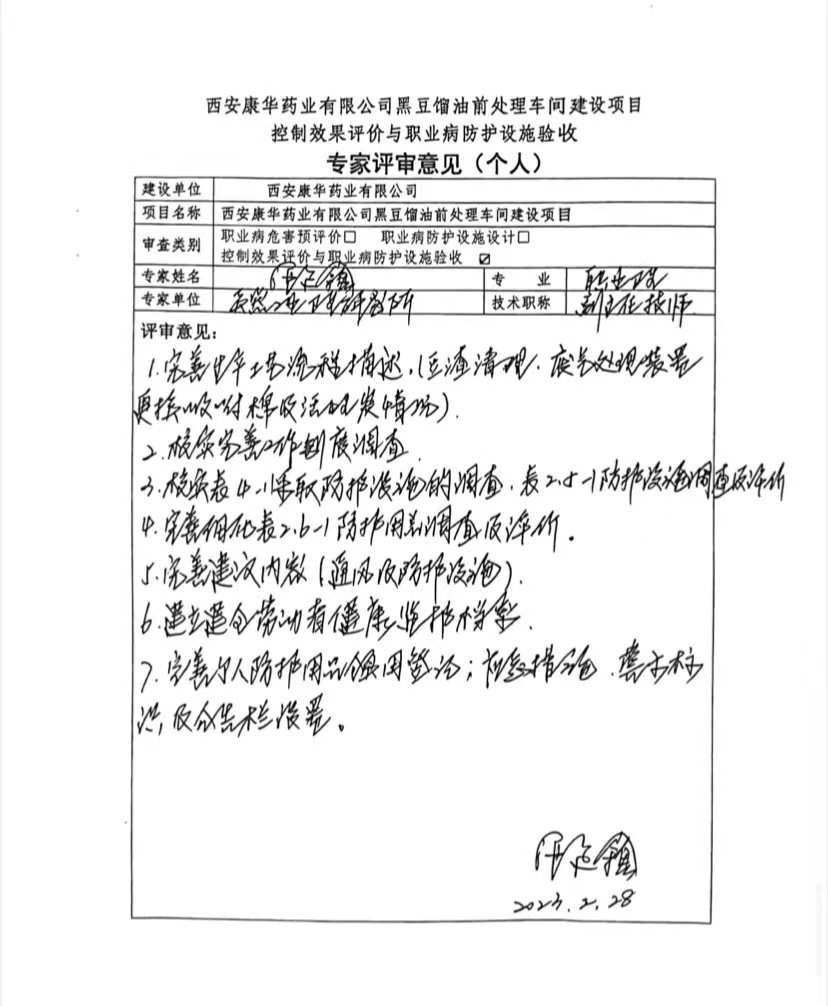 西安康华药业有限公司黑豆馏油前处理车间建设项目
控制效果评价与职业病防护设施验收
专家评审意见（个人）
建设单位 西安康华药业有限公司
项目名称 西安康华药业有限公司黑豆馏油前处理车间建设项目
审查类别 职业病危害预评价□ 职业病防护设施设计□
控制效果评价与职业病防护设施验收 ☑
专家姓名 专 业 职业卫生
专家单位 技术职称 副主任技师
评审意见：
1.完善生产工艺流程描述，(豆渣清理、废气处理装置
更换吸附棉及活性炭情况).
2.核实完善工作制度调查.
3.核实表4.1-1采取防护设施的调查，表2.5-1防护设施调查及评价
4.完善细化表2.6-1防护用品调查及评价.
5.完善建议内容(通风及防护设施).
6.建立健全劳动者健康监护档案.
7.完善个人防护用品使用登记；应急措施、警示标
识及公告栏设置。
2023.2.28